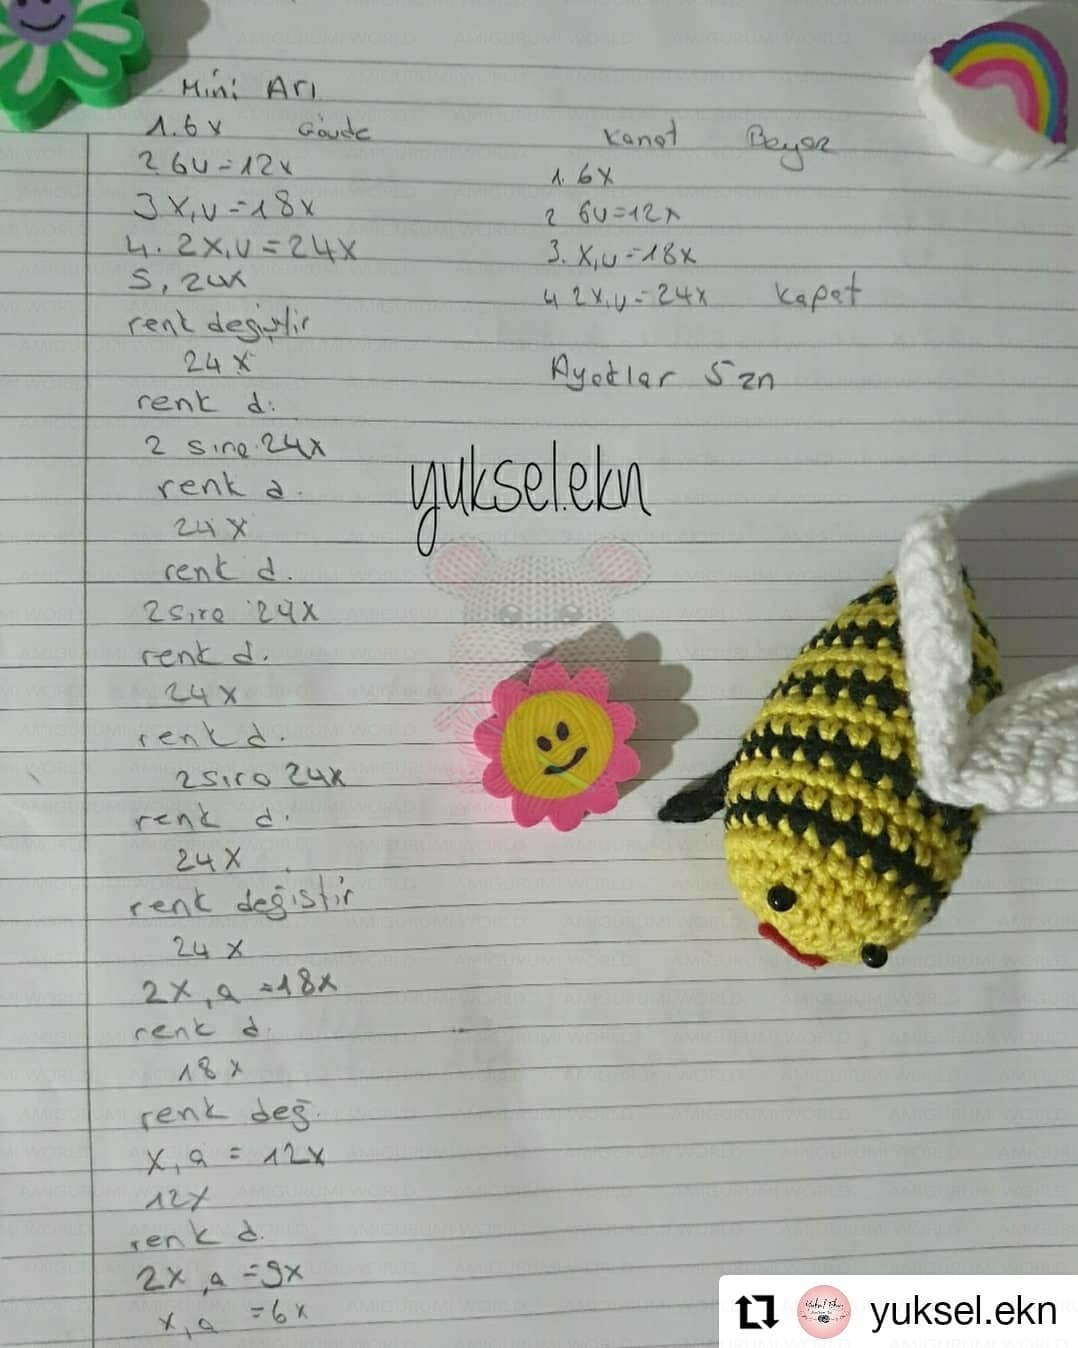 Mini Arı
1. 6x Gövde
2 6v=12x
3 x,v=18x
4. 2x,v=24x
5, 24x
renk değiştir
24x
renk d.
2 sıra 24x
renk d.
24x
renk d.
2 sıra 24x
renk d.
24x
renk d.
2 sıra 24x
renk d.
24x
renk değistir
24x
2x,a =18x
renk d.
18x
renk değ.
x,a = 12x
12x
renk d.
2x,a =9x
x,a =6x
Kanat Beyaz
1. 6x
2 6v=12x
3. x,v=18x
4 2x,v=24x kapat
Ayaklar 5 zn
yuksel.ekn
AMIGURUMI WORLD
yuksel.ekn